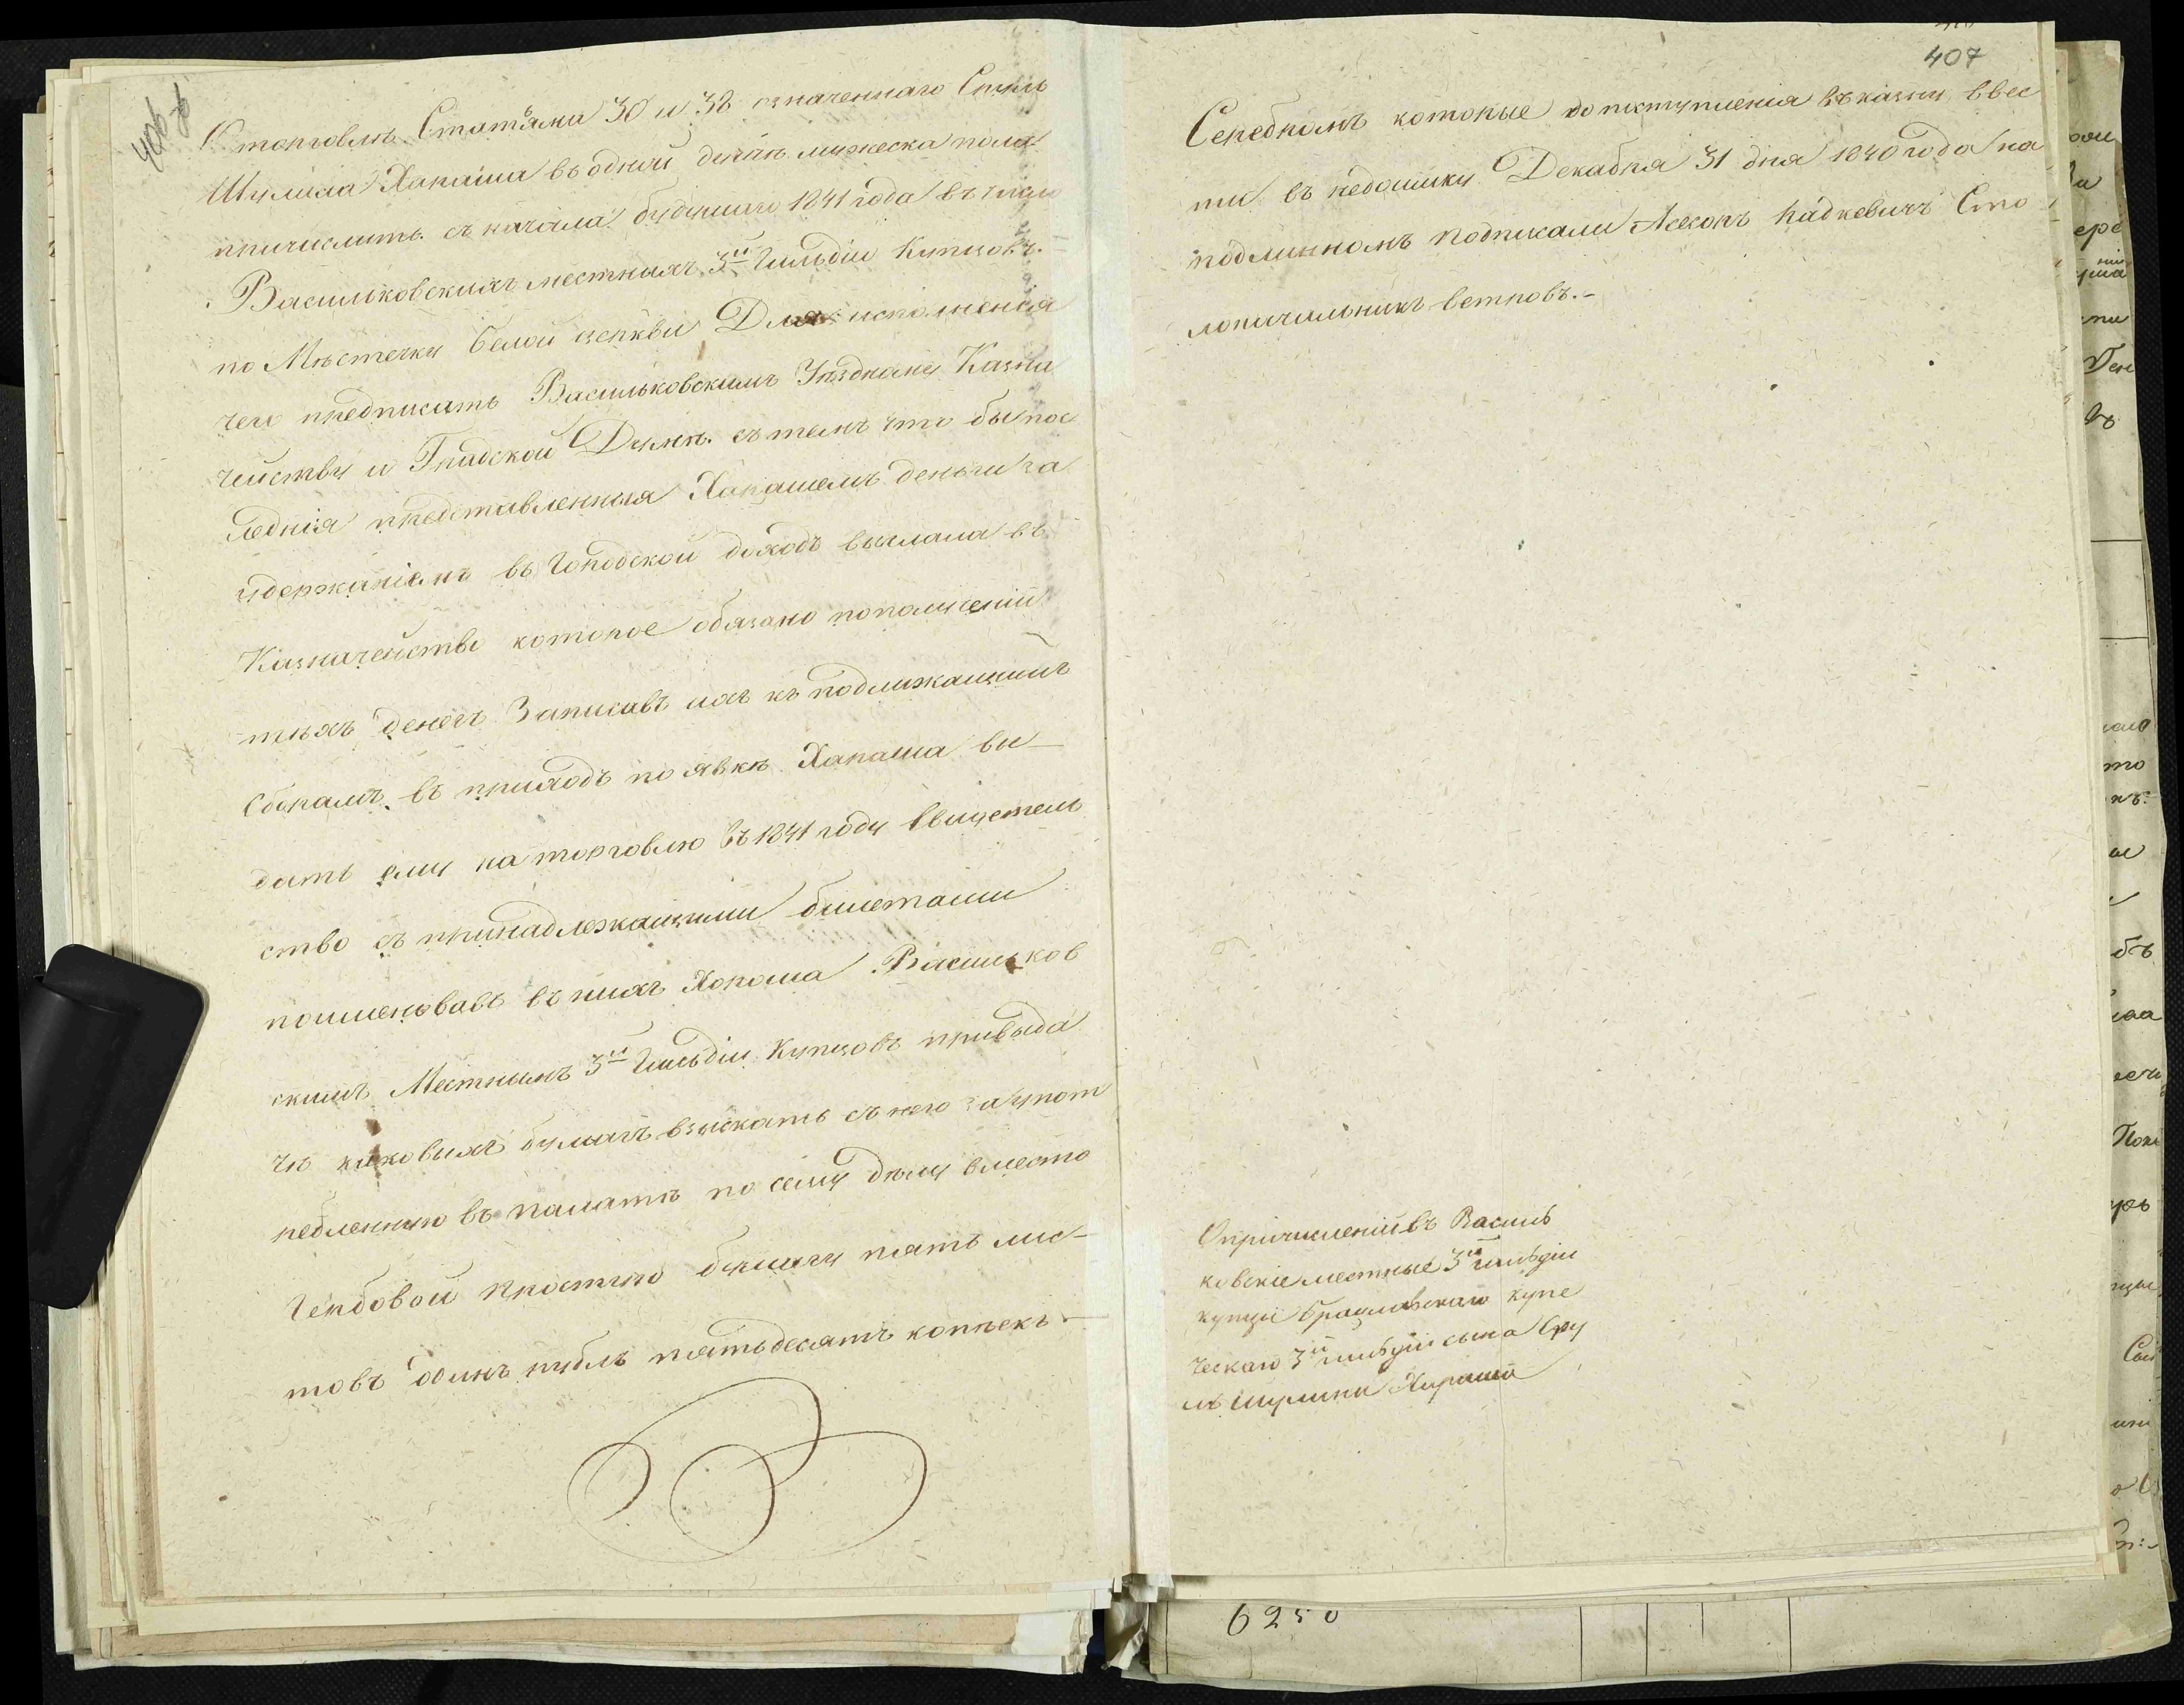 406
об
О торговлѣ Статьями 30 и 38 означеннаго
Шулима Хараша въ одной душѣ мужеска пола
причислить съ начала будущаго 1841 года въ число
Васильковскихъ местныхъ 3й Гильдіи Купцовъ
по Мѣстечку Белой церкви Для исполненія
чего предписать Васильковскимъ Уѣздному Казна
чейству и Градской Думѣ съ темъ что бы пос
ледняя представленныя Харашемъ деньги за
удержаніемъ въ Городской доходъ выслала въ
Казначейство которое обязано по полученіи
тѣхъ денегъ Записавъ ихъ къ подлежащимъ
Сборамъ въ приходъ по явкѣ Хараша вы
дать ему на торговлю въ 1841 году свидетель
ство съ принадлежащими билетами
поименовавъ въ нихъ Хороша Васильков
скимъ Местнымъ 3й Гильдіи Купцовъ при выда
чѣ каковыхъ бумагъ взыскать съ него за упот
ребленную въ палатѣ по сему дѣлу вместо
Гербовой простую бумагу пять лис-
товъ одинъ рубль пятьдесятъ копѣекъ
407
Серебромъ которые до поступленія въ казну ввес
ти въ недоимку Декабря 31 дня 1840 года на
подлинномъ подписали Асесоръ Радкевичъ Сто
лоначальникъ Ветровъ.-
О причисленіи въ Василь
ковскіе местные 3й гильдіи
купцы Брацлавскаго купе
ческаго 3й гильдіи сына Сру
ля Шулима Хараша
6250